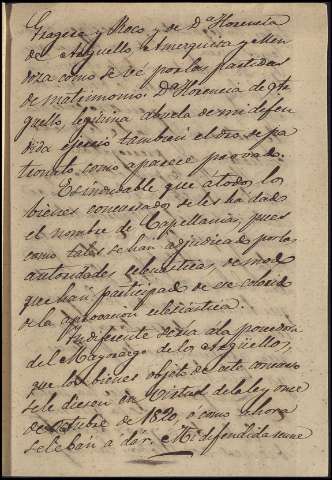 Fragera y Moco y de Dª Florencia
de Arguello Amerquisa y Men
doza como se ve por las partidas
de matrimonio. Dª Florencia de Ar
guello, legitima abuela de mi defen
dida ejerció tambien el dro de pa
tronato como aparece provado.
Es indudable que á todos los
bienes concursados se les ha dado
el nombre de Capellanías, pues
como tales se han adjudicado por las
autoridades eclesiasticas, de modo
que han participado de ese colorido
de la aprovacion eclesiástica.
Indiferente seria ala poseedora
del Mayorazgo de los Arguellos,
que los bienes objeto de este concurso
se le diesen en virtud de la ley once
de octubre de 1820, o como ahora
se le ban á dar. Mi defendida reune